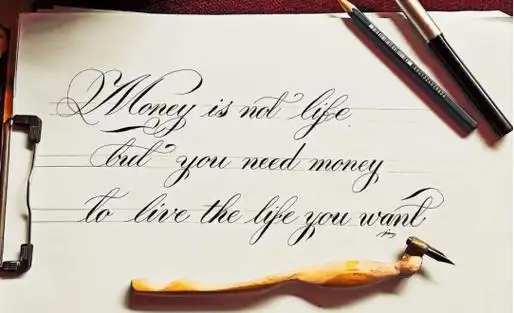 Money is not life
but you need money
to live the life you want